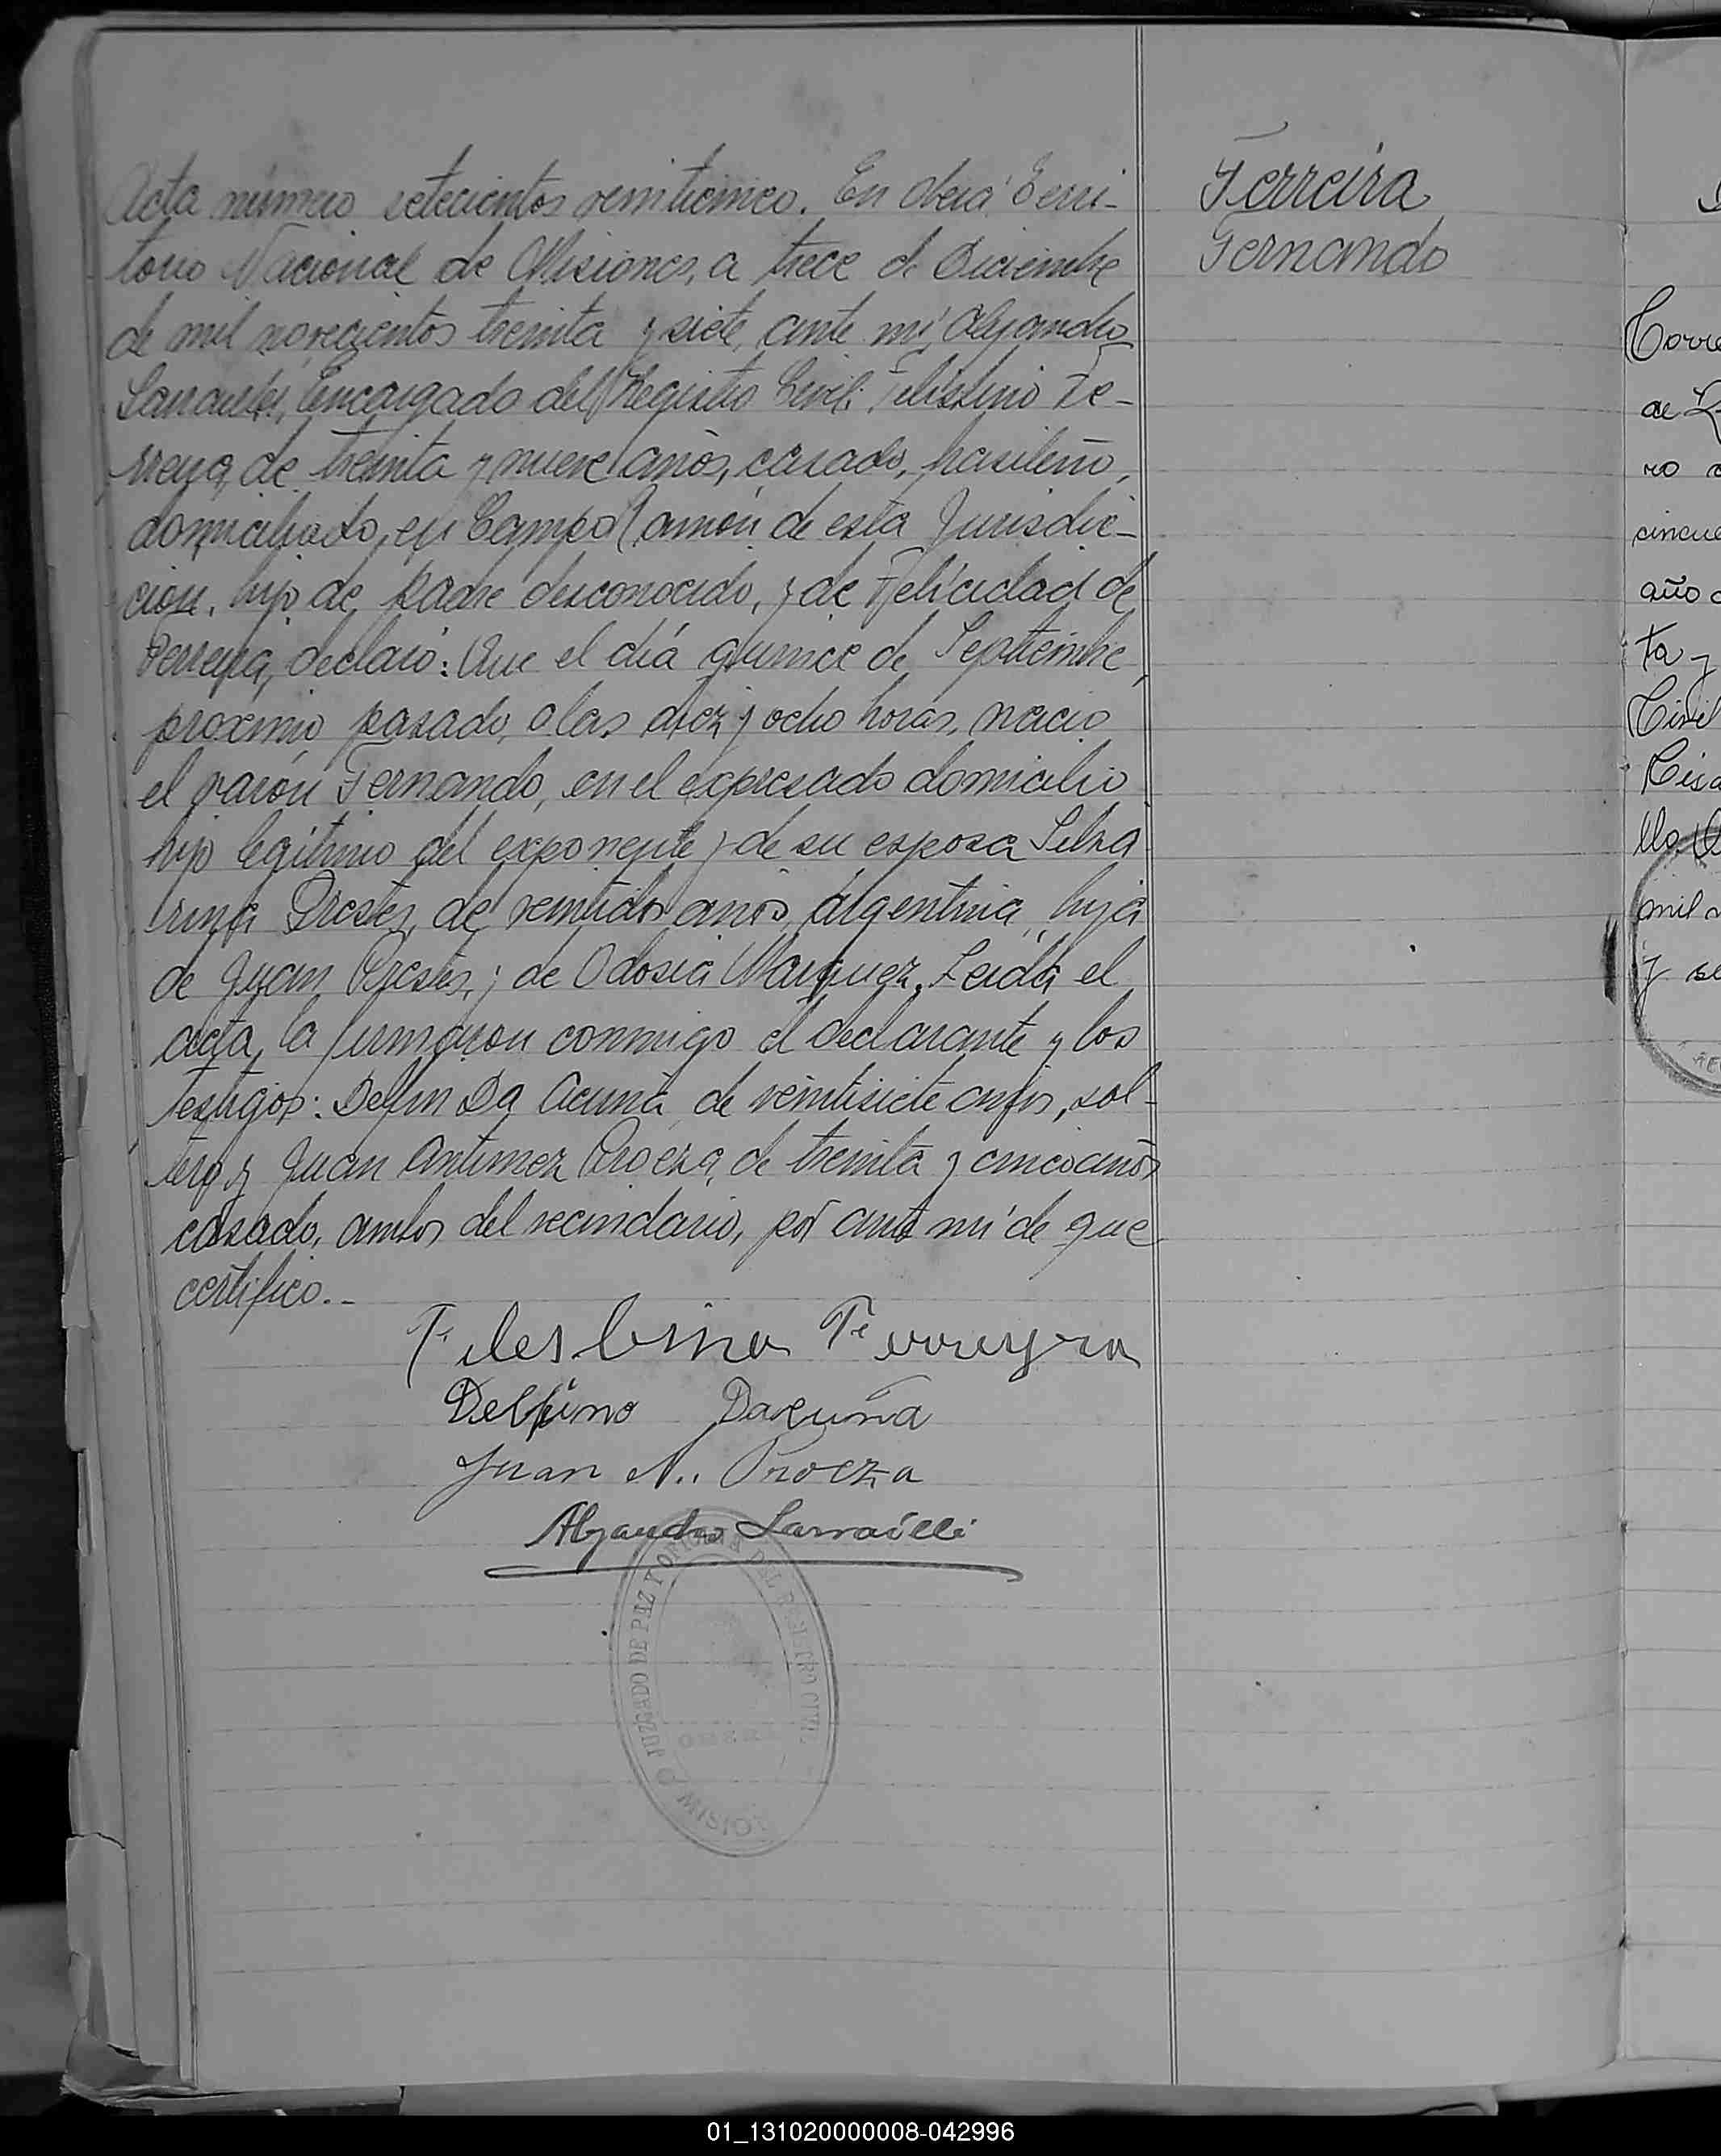 Ferreira
Fernando
Acta número setecientos veinticinco. En Oberá Terri-
torio Nacional de Misiones, a trece de Diciembre
de mil novecientos treinta y siete, ante mí, Alejandro
Encargado del Registro Civil; Fe-
rreyra, de treinta y nueve años, casado, brasileño,
domiciliado, en Campo Ramón de esta Jurisdic-
ción, hijo de padre desconocido, y de Felicidad de
Ferreyra, declaró: Que el día quince de Septiembre
próximo pasado, a las diez y ocho horas, nació
el varón Fernando, en el expresado domicilio
hijo legítimo del exponente y de su esposa
Prestes, de veintidos años, argentina, hija
de Juan Prestes, y de Odosia Marquez. Leida el
acta, la firmaron conmigo el declarante y los
testigos: Delfin Da Acuña, de veintisiete años, sol-
tero y Juan Proeza, de treinta y cinco años
casado, ambos del vecindario, por ante mí de que
certifico.-
Ferreyra
Delfino Dacuña
Juan N. Proeza
Alejandro
JUZGADO DE PAZ Y OFICINA DEL REGISTRO CIVIL
Corre
de
ro
cincue
año
ta y
Civil
mil
y se
01_131020000008-042996